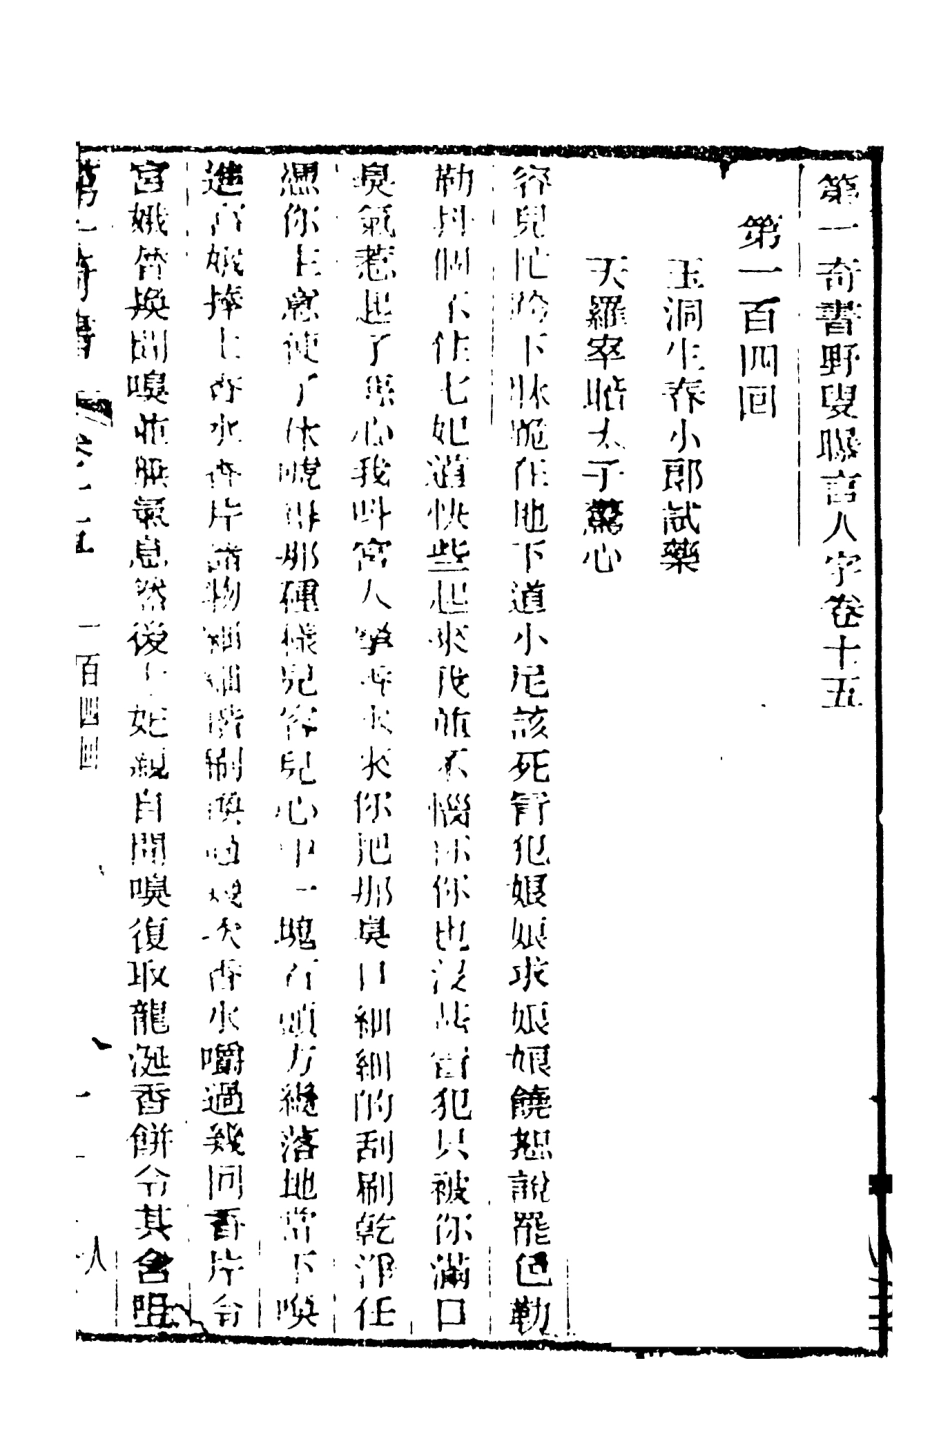 第一奇書野叟曝言人字卷十五
第一百四回
玉洞生春小郎試藥
天羅宰腊太子驚心
容兒忙跨下牀跪在地下道小尼該死冒犯娘娘求娘娘饒恕說罷色勒
勒丹個不住七妃道快些起來我並不惱你你也沒甚冒犯只被你滿口
臭氣惹起了惡心我叫宮人拏香水來你把那臭口細細的刮刷乾淨任
憑你主意便了休唬得那種樣兒容兒心中一塊石頭方纔落地當下喚
進宮娥捧上香水香片諸物細細揩刷換過幾次香水嚼過幾回香片令
宮娥替換聞嗅並無氣息然後七妃親自聞嗅復取龍涎香餅令其含咀
第一奇書 卷十五 一百四回 八